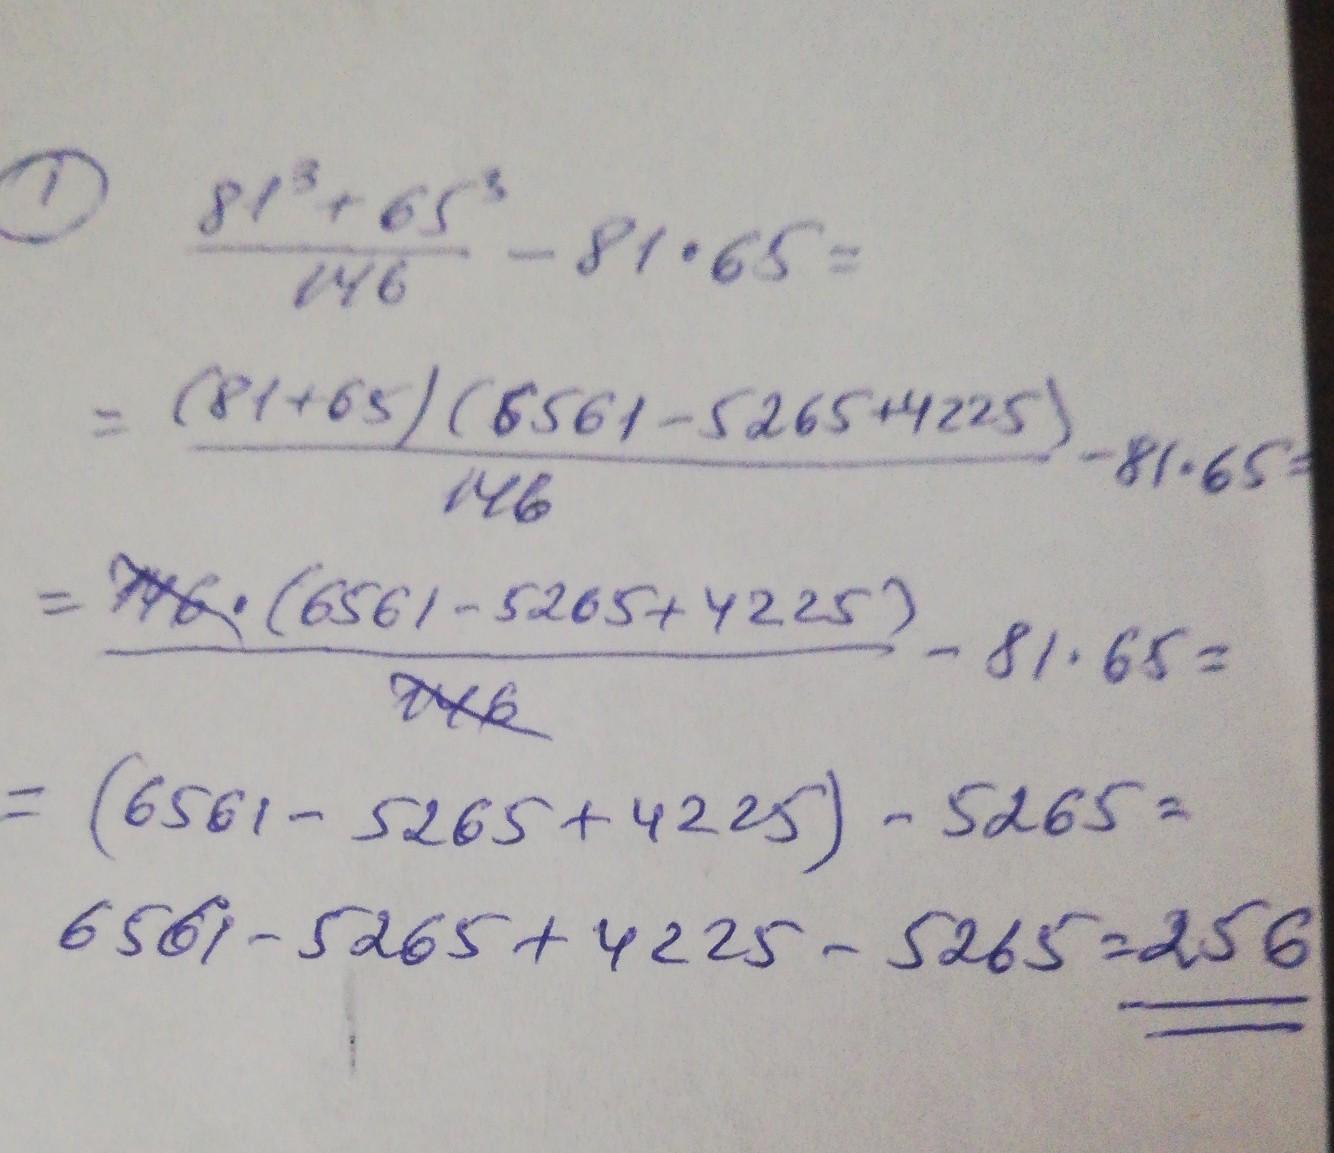 ① (81³ + 65³)/146 - 81 · 65 =
= ((81+65)(6561 - 5265 + 4225))/146 - 81 · 65 =
= (146 · (6561 - 5265 + 4225))/146 - 81 · 65 =
= (6561 - 5265 + 4225) - 5265 =
6561 - 5265 + 4225 - 5265 = 256